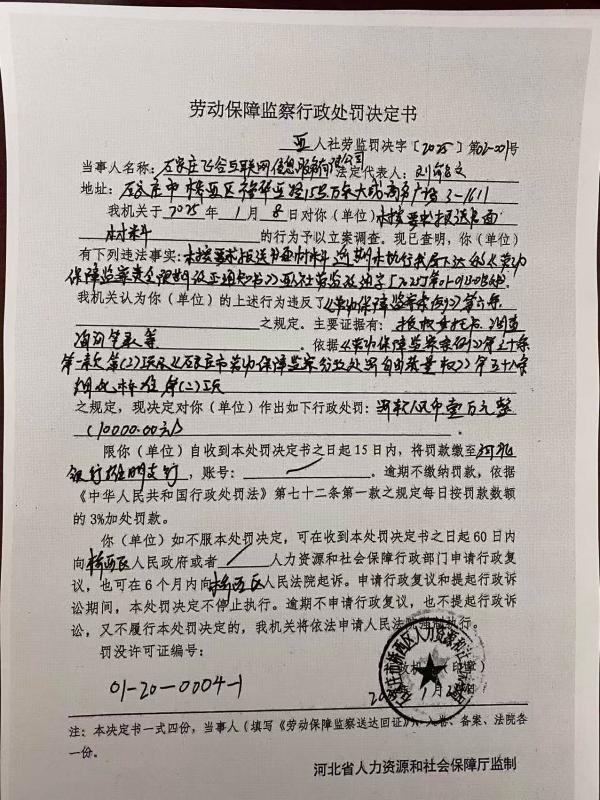 劳动保障监察行政处罚决定书
人社劳监罚决字〔2025〕第02-001号
当事人名称:石家庄飞合互联网信息服务有限公司 法定代表人:刘
地址:石家庄市桥西区裕华西路15号万象大成商务广场3-1611
我机关于2025年1月8日对你(单位)未按要求报送书面
材料的行为予以立案调查。现已查明,你(单位)
有下列违法事实:未按要求报送书面材料,逾期未执行我局下达的《劳动
保障监察责令限期改正通知书》
我机关认为你(单位)的上述行为违反了《劳动保障监察条例》第六条
之规定。主要证据有:授权委托书、调查
询问笔录等。依据《劳动保障监察条例》第三十条
第一款第(2)项及《石家庄市劳动保障监察行政处罚自由裁量权》第三十八条
第(二)项
之规定,现决定对你(单位)作出如下行政处罚:罚款人民币壹万元整
(10000.00元)
限你(单位)自收到本处罚决定书之日起15日内,将罚款缴至河北
银行 支行,账号: 。逾期不缴纳罚款,依据
《中华人民共和国行政处罚法》第七十二条第一款之规定每日按罚款数额
的3%加处罚款。
你(单位)如不服本处罚决定,可在收到本处罚决定书之日起60日内
向桥西区人民政府或者 人力资源和社会保障行政部门申请行政复
议,也可在6个月内向桥西区人民法院起诉。申请行政复议和提起行政诉
讼期间,本处罚决定不停止执行。逾期不申请行政复议,也不提起行政诉
讼,又不履行本处罚决定的,我机关将依法申请人民法院强制执行。
罚没许可证编号:
石家庄市桥西区人力资源和社会保障局
01-20-0004-1
注:本决定书一式四份,当事人(填写《劳动保障监察送达回证》)、入卷、备案、法院各
一份。
河北省人力资源和社会保障厅监制